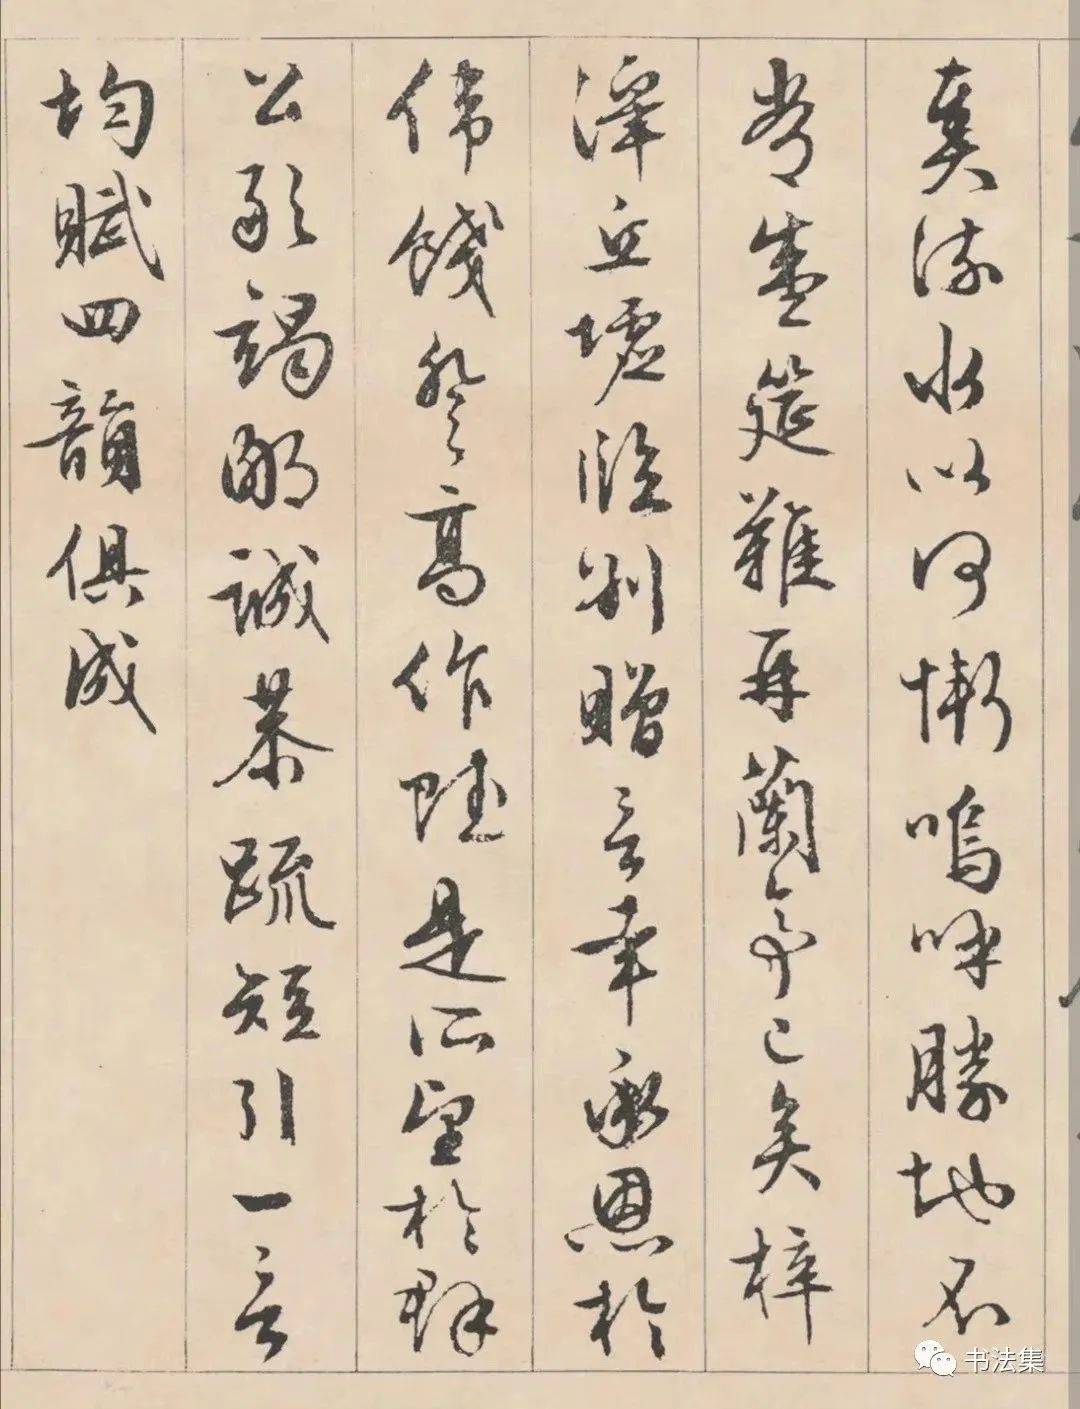 奏流水以何慚嗚呼勝地不
常盛筵難再蘭亭已矣梓
澤丘墟臨別贈言幸承恩於
偉餞登高作賦是所望於群
公敢竭鄙誠恭疏短引一言
均賦四韻俱成
书法集